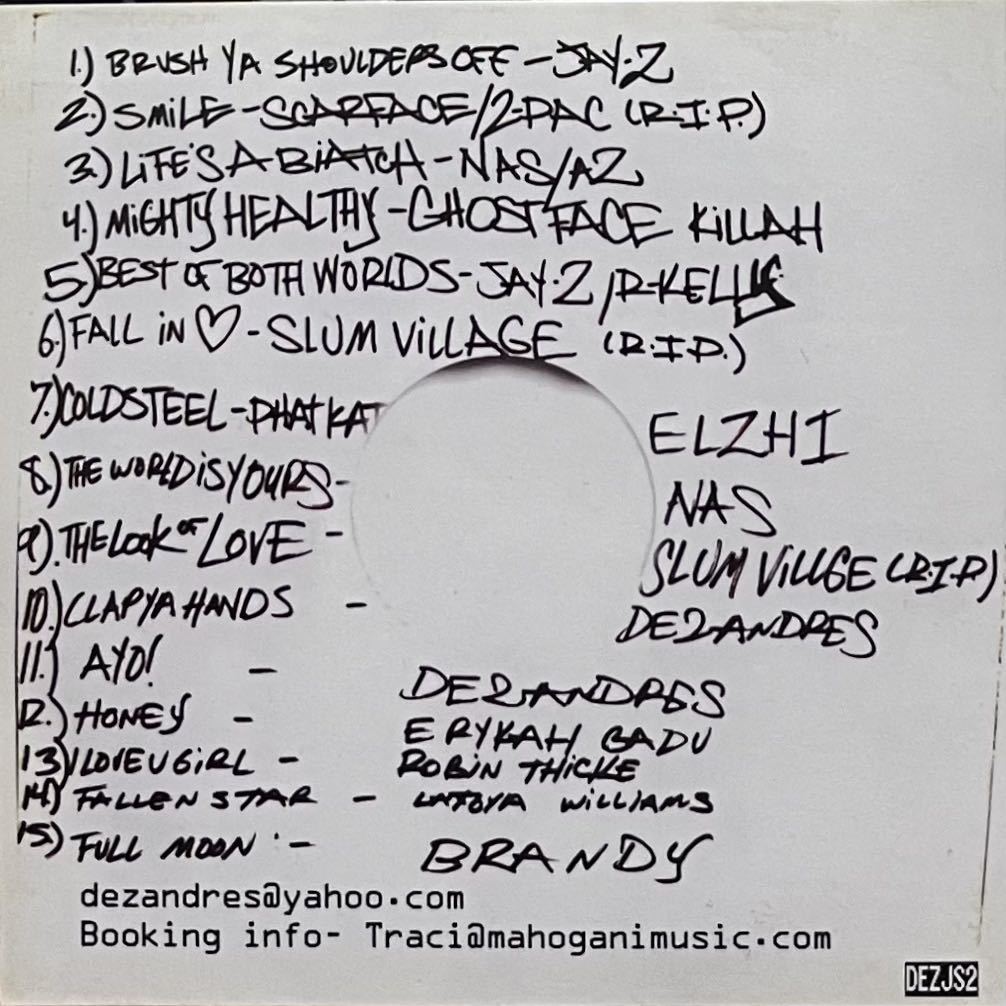 1.) BRUSH YA SHOULDERS OFF - JAY-Z
2.) SMiLE - SCARFACE/2-PAC (R.I.P.)
3.) LiFE'S A BiATCH - NAS/AZ
4.) MiGHTY HEALTHY - GHOSTFACE KiLLAH
5.) BEST OF BOTH WORLDS - JAY-Z / R-KELLY
6.) FALL iN ♡ - SLUM ViLLAGE (R.I.P.)
7.) COLDSTEEL - PHAT KAT ELZHI
8.) THE WORLD iS YOURS - NAS
9). THE LOOK OF LOVE - SLUM ViLLGE (R.I.P)
10.) CLAP YA HANDS - DEZANDRES
11.) AYO! - DEZANDRES
12.) HONEY - ERYKAH BADU
13) I LOVE U GiRL - ROBiN THiCKE
14.) FALLEN STAR - LATOYA WiLLiAMS
15.) FULL MOON - BRANDY
dezandres@yahoo.com
Booking info- Traci@mahoganimusic.com
DEZJS2